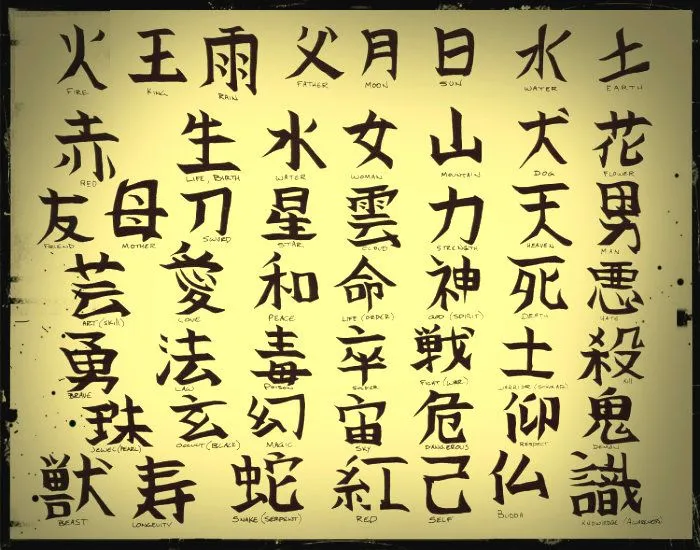 火 王 雨 父 月 日 水 土
FIRE KING RAIN FATHER MOON SUN WATER EARTH
赤 生 水 女 山 犬 花
RED LIFE, BIRTH WATER WOMAN MOUNTAIN DOG FLOWER
友 母 刀 星 雲 力 天 男
FRIEND MOTHER SWORD STAR CLOUD STRENGTH HEAVEN MAN
芸 愛 和 命 神 死 悪
ART (SKILL) LOVE PEACE LIFE (ORDER) GOD (SPIRIT) DEATH HATE
勇 法 毒 卒 戦 士 殺
BRAVE LAW POISON FIGHT (WAR) WARRIOR (SCHOLAR) KILL
珠 玄 幻 宙 危 仰 鬼
JEWEL (PEARL) OCCULT (BLACK) MAGIC SKY DANGEROUS RESPECT DEMON
獣 寿 蛇 紅 己 仏 識
BEAST LONGEVITY SNAKE (SERPENT) RED SELF BUDDA KNOWLEDGE (AWARENESS)